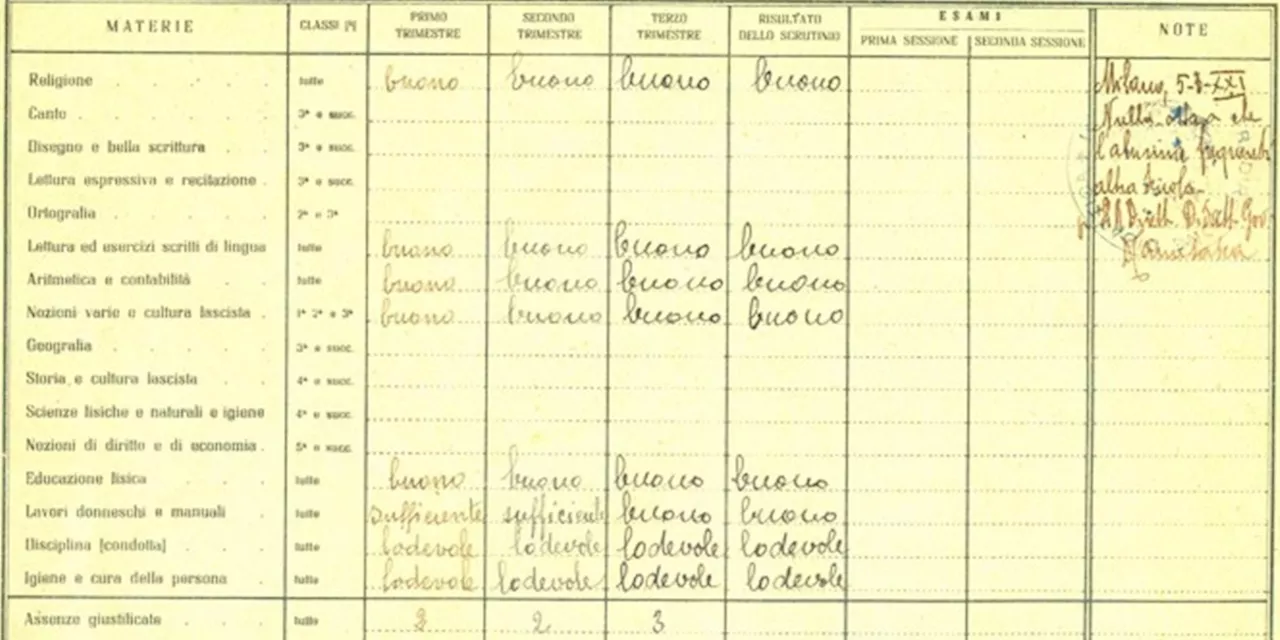 MATERIE CLASSI (*) PRIMO TRIMESTRE SECONDO TRIMESTRE TERZO TRIMESTRE RISULTATO DELLO SCRUTINIO ESAMI PRIMA SESSIONE SECONDA SESSIONE NOTE
Religione tutte buono buono buono buono
Canto 3ª e succ.
Disegno e bella scrittura 3ª e succ.
Lettura espressiva e recitazione 3ª e succ.
Ortografia 2ª e 3ª
Lettura ed esercizi scritti di lingua tutte buono buono buono buono
Aritmetica e contabilità tutte buono buono buono buono
Nozioni varie e cultura fascista 1ª 2ª e 3ª buono buono buono buono
Geografia 3ª e succ.
Storia e cultura fascista 4ª e succ.
Scienze fisiche e naturali e igiene 4ª e succ.
Nozioni di diritto e di economia 5ª e succ.
Educazione fisica tutte buono buono buono buono
Lavori donneschi e manuali tutte sufficiente sufficiente buono buono
Disciplina (condotta) tutte lodevole lodevole lodevole lodevole
Igiene e cura della persona tutte lodevole lodevole lodevole lodevole
Assenze giustificate tutte 2 2 3
Milano, 5-8-XXI
Nulla osta a che
l'alunno frequenti
altra scuola